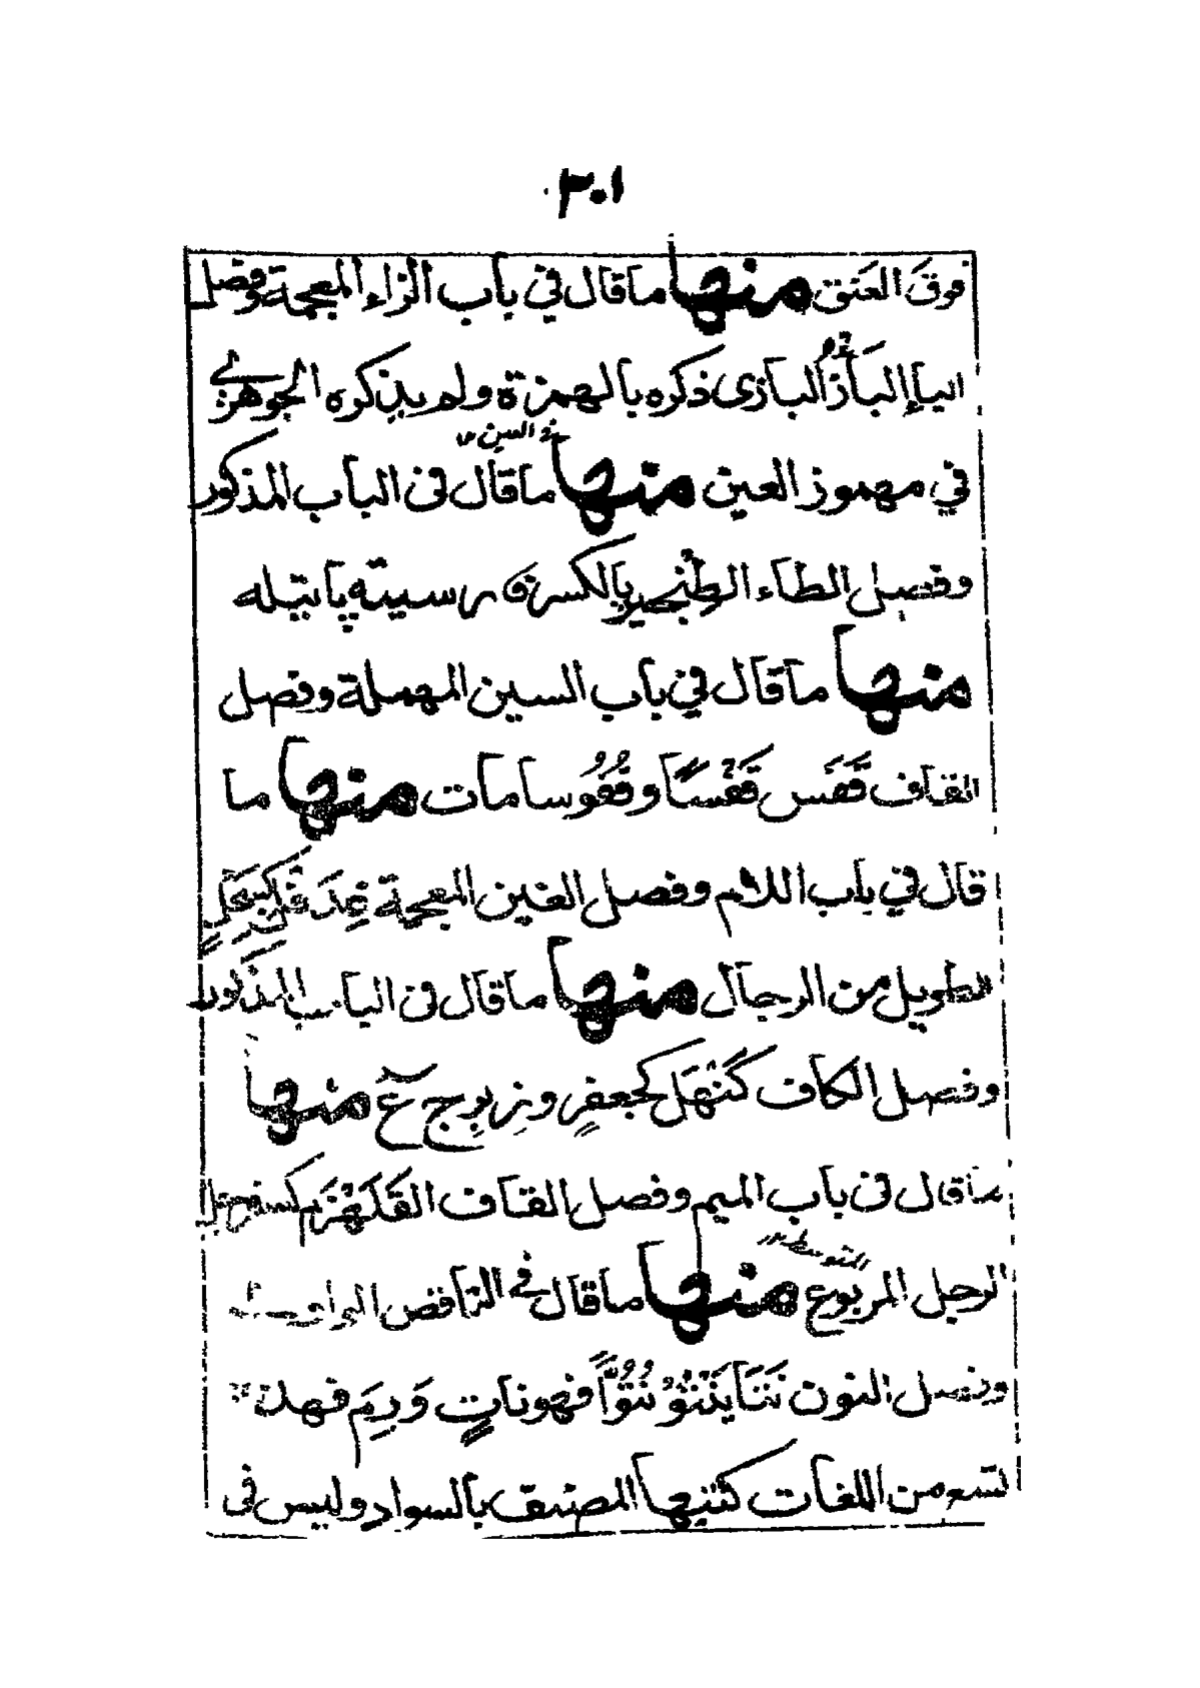 ٣٠١
فوقَ العَنق منها ما قال في باب الزاء المعجمة وفصل
الباء البَأزُ البازى ذكره بالهمزة ولم يذكره الجوهرى
في مهموز العين منها ما قال فى الباب المذكور
وفصل الطاء الطِنجير بالكسر ف ر سيته پاتيله
منها ما قال في باب السين المهملة وفصل
القاف قَفَس قَفْسًا وقُفُوسا مات منها ما
قال في باب اللام وفصل الغين المعجمة
الطويل من الرجال منها ما قال فى الباب المذكور
وفصل الكاف كَنَهْبَل كجعفرٍ وزبرِج ع منها
ما قال فى باب الميم وفصل القاف القَهْزَم كسفرجل
المتوسط
الرجل المربوع منها ما قال في الناقص الواوى
وفصل النون نَتَا يَنْتُوْ نُتُوًّا فهو ناتٍ وَرِمَ فهذه
تسع من اللغات كتبها المصنف بالسواد وليس فى